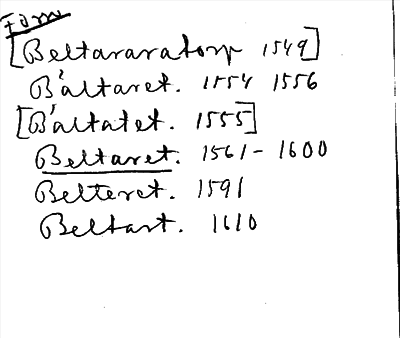 Form
[Beltararatorp 1549]
Bältaret. 1554 1556
[Bältatet. 1555]
Beltaret. 1561-1600
Belteret. 1591
Beltart. 1610